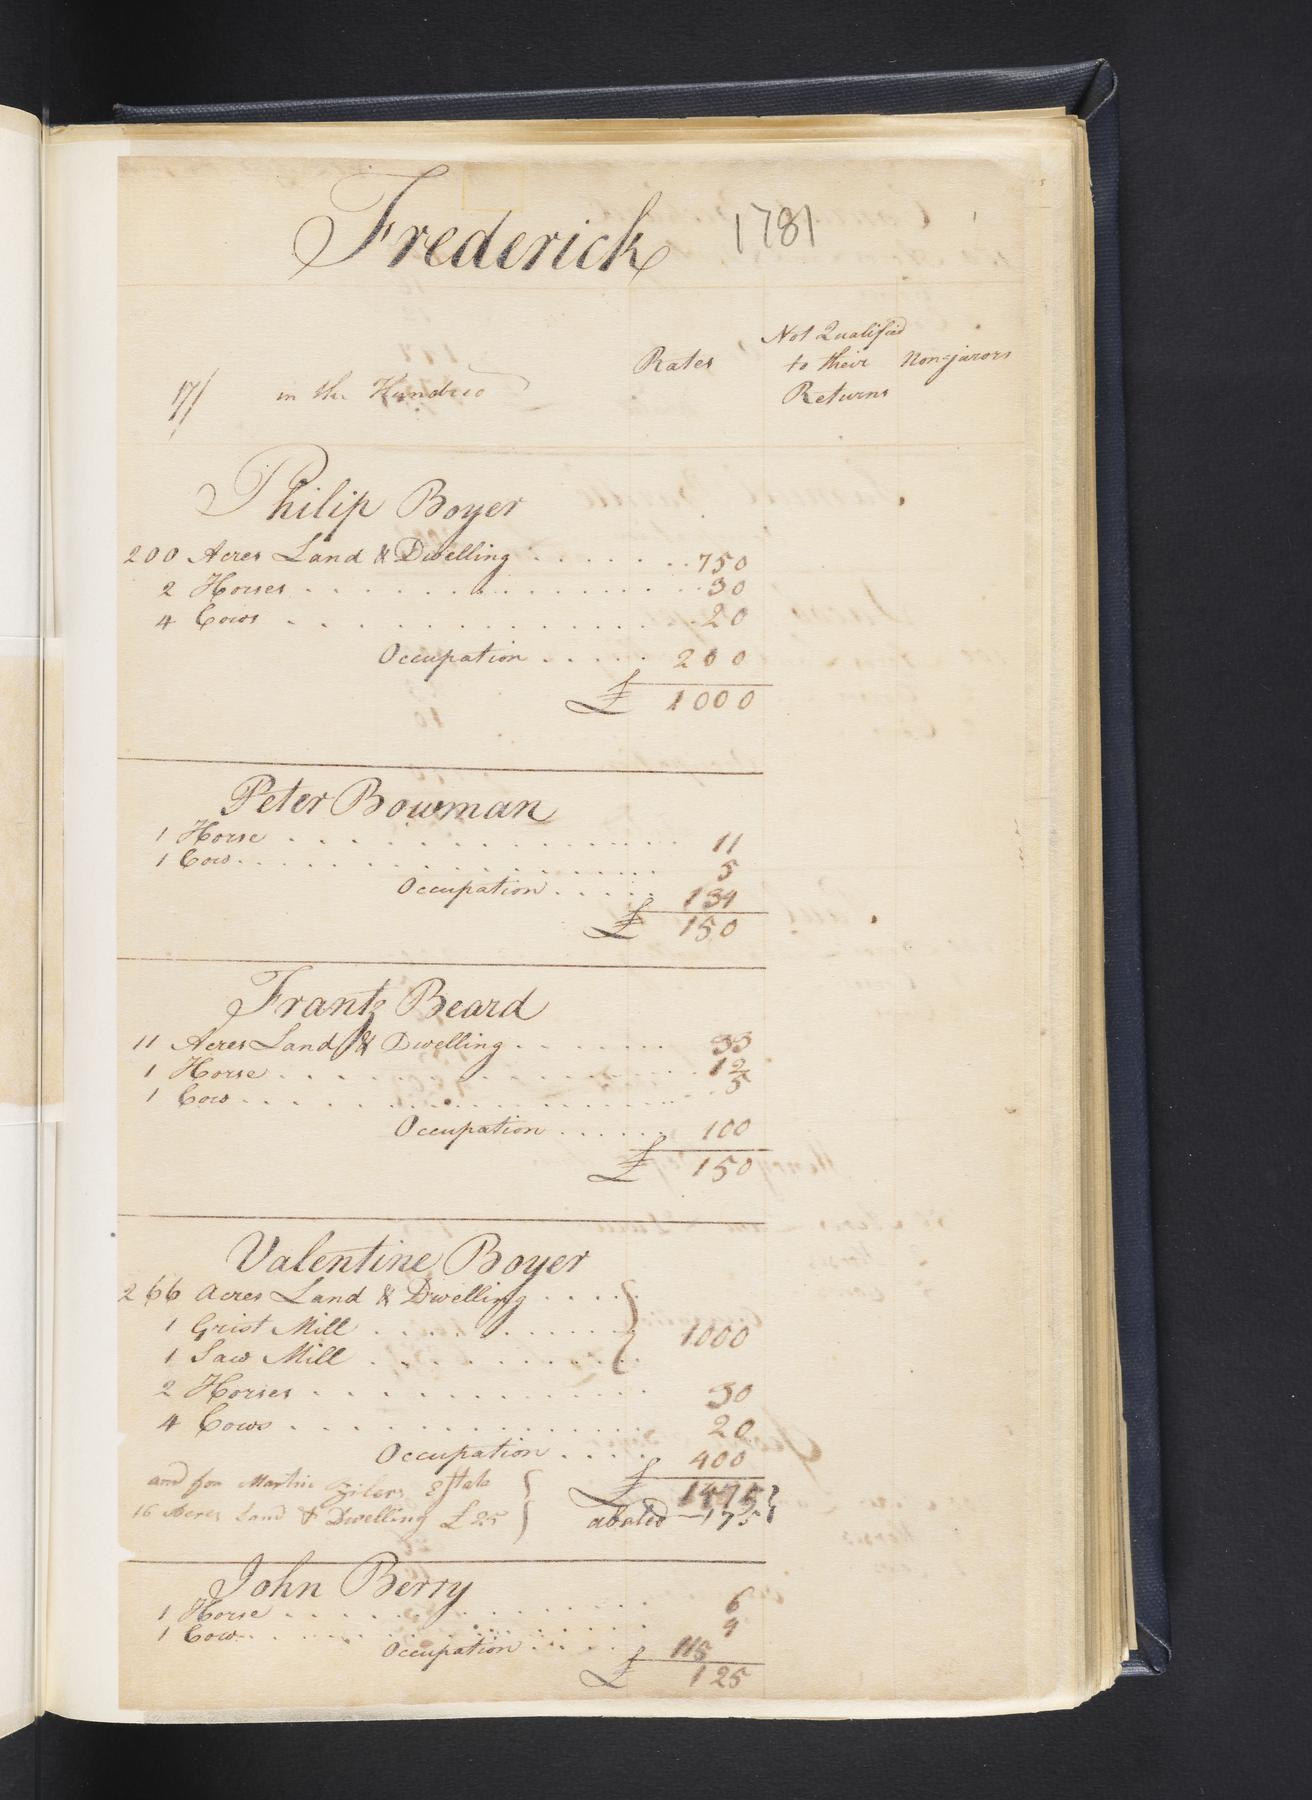 Frederick 1781
17/ in the Hundred Rates Not Qualified to their Returns Non-jurors
Philip Boyer
200 Acres Land & Dwelling . . . . . . . 750
2 Horses . . . . . . . . . . . . . . . . 30
4 Cows . . . . . . . . . . . . . . . . 20
Occupation . . . . . 200
£ 1000
Peter Bowman
1 Horse . . . . . . . . . . . . . . . . . 11
1 Cow . . . . . . . . . . . . . . . . 5
Occupation . . . . . 134
£ 150
Frantz Beard
11 Acres Land & Dwelling . . . . . . . 33
1 Horse . . . . . . . . . . . . . . . . 12
1 Cow . . . . . . . . . . . . . . . . 5
Occupation . . . . . . 100
£ 150
Valentine Boyer
266 Acres Land & Dwelling . . . .
1 Grist Mill . . . . . . . . . . . 1000
1 Saw Mill . . . . . . . . . . .
2 Horses . . . . . . . . . . . . . 30
4 Cows . . . . . . . . . . . . . . 20
Occupation . . . . 400
and for Martin Estate £ 1475
16 Acres Land & Dwelling £ 25 abated — 175
John Berry
1 Horse . . . . . . . . . . . . . . . 6
1 Cow . . . . . . . . . . . . . . . 4
Occupation . . . . . 115
£ 125